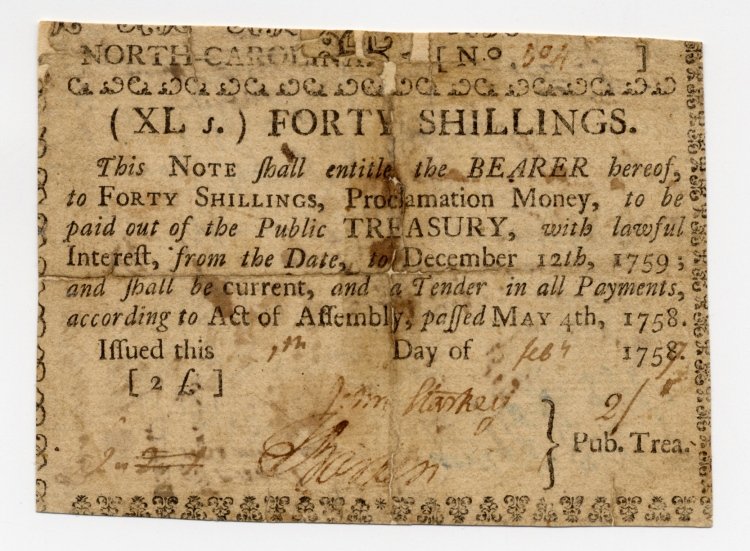 NORTH-CAROLINA. [ No. 304 ]
( XL s. ) FORTY SHILLINGS.
This NOTE ſhall entitle the BEARER hereof,
to FORTY SHILLINGS, Proclamation Money, to be
paid out of the Public TREASURY, with lawful
Intereſt, from the Date, to December 12th, 1759;
and ſhall be current, and a Tender in all Payments,
according to Act of Aſſembly, paſſed MAY 4th, 1758.
Iſſued this Day of feb 1758
[ 2 £. ]
John Starkey
2/
Pub. Trea.